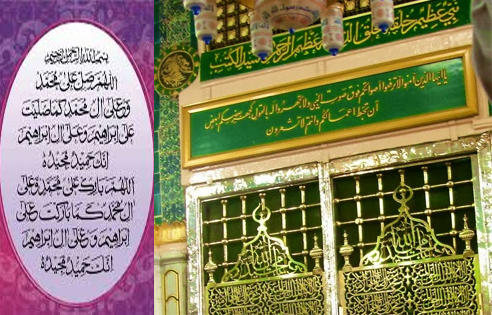 بسم الله الرحمن الرحيم
اللهم صل على محمد
وعلى ال محمد كما صليت
على ابراهيم وعلى ال ابراهيم
انك حميد مجيد
اللهم بارك على محمد وعلى
ال محمد كما باركت وعلى
ابراهيم وعلى ال ابراهيم
انك حميد مجيد
نبي عظيم خلقه الخلق الذي له عظم الرحمن في سيد الكتب
يا ايها الذين آمنوا لا ترفعوا أصواتكم فوق صوت النبي ولا تجهروا له بالقول كجهر بعضكم لبعض
أن تحبط أعمالكم وانتم لا تشعرون